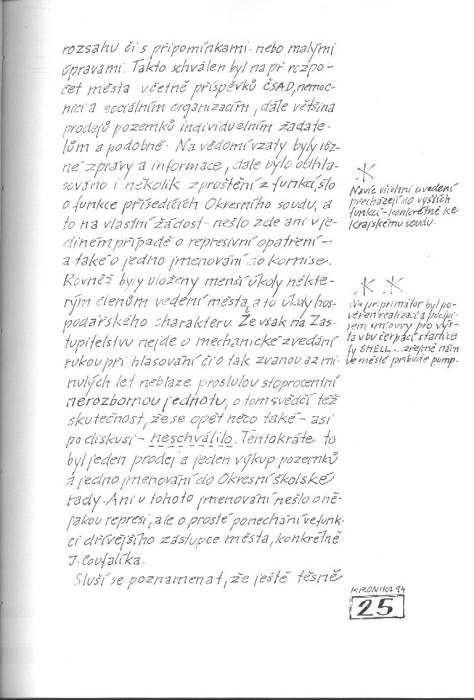 rozsahu či s připomínkami nebo malými
úpravami. Takto schválen byl např. rozpo-
čet města včetně příspěvků ČSAD, nemoc-
nici a sociálním organizacím, dále většina
prodejů pozemků individuelním žadate-
lům a podobně. Na vědomí vzaty byly růz-
né zprávy a informace, dále bylo odhla-
sováno i několik zproštění z funkcí, šlo
o funkce přísedících Okresního soudu, a
to na vlastní žádost - nešlo zde ani v je-
diném případě o represivní opatření -
a také o jedno jmenování do komise.
Rovněž byly uloženy menší úkoly někte-
rým členům vedení města, a to úkoly hos-
podářského charakteru. Že však na Zas-
tupitelstvu nejde o mechanické zvedání
rukou při hlasování či o tak zvanou a z mi-
nulých let neblaze proslulou stoprocentní
nerozbornou jednotu, o tom svědčí též
skutečnost, že se opět něco také - asi
po diskusi - neschválilo. Tentokráte to
byl jeden prodej a jeden výkup pozemků
a jedno jmenování do Okresní školské
rady. Ani u tohoto jmenování nešlo o ně-
jakou represi, ale o prosté ponechání ve funk-
ci dřívějšího zástupce města, konkrétně
J. Coufalíka.
Sluší se poznamenat, že ještě těsně
*
Navíc všichni uvedení
přecházejí do vyšších
funkcí - konkrétně ke
Krajskému soudu.
* *
Např. primátor byl po-
věřen realizací a podpi-
sem smlouvy pro výs-
tavbu čerpací stanice
fy SHELL ... zřejmě nám
ve městě přibude pump.
KRONIKA 94
25